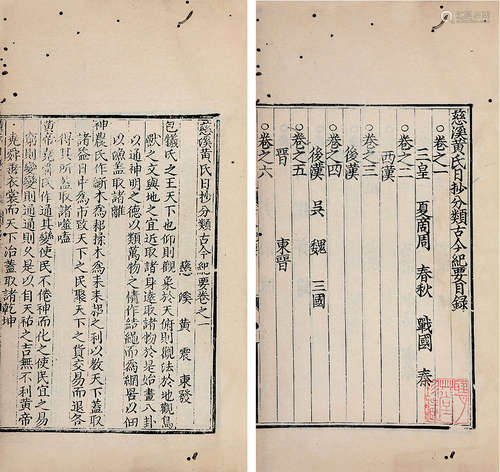 慈溪黄氏日抄分類古今紀要目録
○卷之一
三皇 夏商周 春秋 戰國 秦
○卷之二
西漢
○卷之三
後漢
○卷之四
後漢 吳 魏 三國
○卷之五
晉
○卷之六
東晉
慈溪黄氏日抄分類古今紀要卷之一
慈溪黄震東發
包犧氏之王天下也仰則觀象於天俯則觀法於地觀鳥
獸之文與地之宜近取諸身遠取諸物於是始畫八卦
以通神明之德以類萬物之情作結繩而為網罟以佃
以漁蓋取諸離
神農氏作斲木為耜揉木為耒耒耜之利以教天下蓋取
諸益日中為市致天下之民聚天下之貨交易而退各
得其所蓋取諸噬嗑
黄帝堯舜氏作通其變使民不倦神而化之使民宜之易
窮則變變則通通則久是以自天祐之吉無不利黄帝
堯舜垂衣裳而天下治蓋取諸乾坤